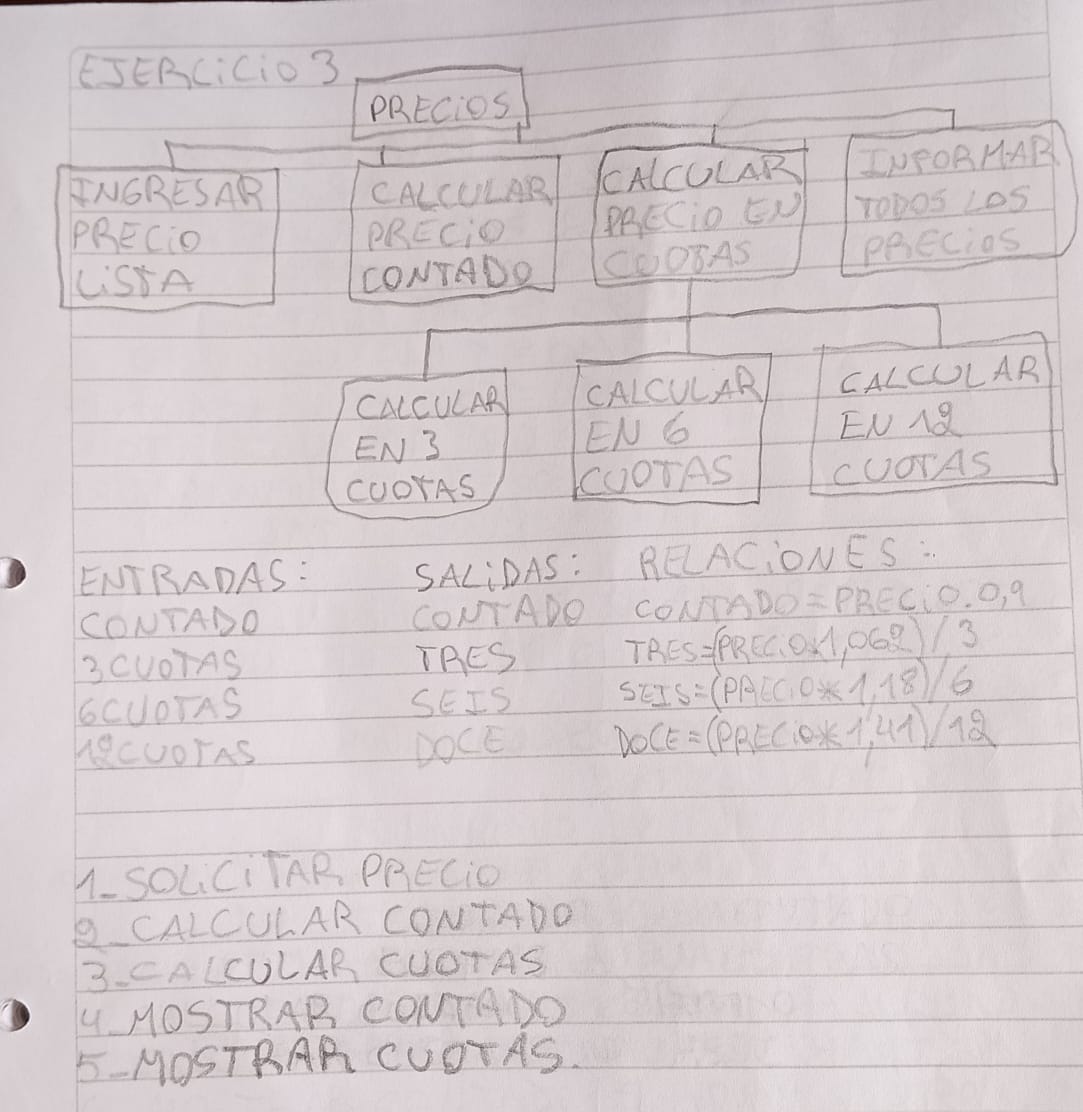 EJERCiCiO 3
PRECiOS
INGRESAR
PRECiO
LiSTA
CALCULAR
PRECiO
CONTADO
CALCULAR
PRECiO EN
CUOTAS
INFORMAR
TODOS LOS
PRECiOS
CALCULAR
EN 3
CUOTAS
CALCULAR
EN 6
CUOTAS
CALCULAR
EN 12
CUOTAS
ENTRADAS: SALiDAS: RELACiONES:
CONTADO CONTADO CONTADO=PRECiO.0,9
3 CUOTAS TRES TRES=(PRECiO*1,062)/3
6 CUOTAS SEIS SEIS=(PRECiO*1,18)/6
12 CUOTAS DOCE DOCE=(PRECiO*1,41)/12
1_SOLiCiTAR PRECiO
2_CALCULAR CONTADO
3_CALCULAR CUOTAS
4_MOSTRAR CONTADO
5_MOSTRAR CUOTAS.